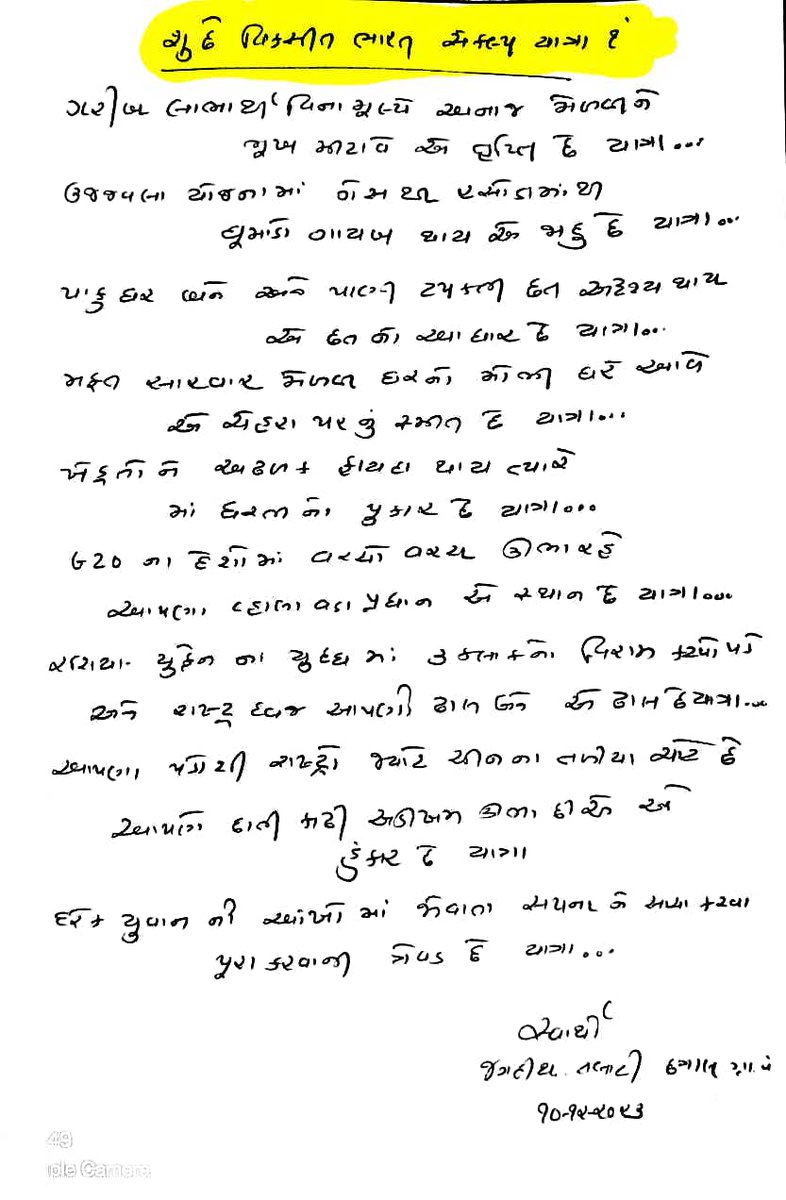 શું છે વિકસીત ભારત સંકલ્પ યાત્રા ?
ગરીબ લાભાર્થી વિના મૂલ્યે અનાજ મેળવીને
ભૂખ મીટાવે એ તૃપ્તિ છે યાત્રા...
ઉજ્જવલા યોજનામાં ગેસ થકી રસોડામાંથી
ધૂમાડો ગાયબ થાય એ જાદુ છે યાત્રા...
પાકુ ઘર બને અને પાણી ટપકતી છત અદ્રશ્ય થાય
એ છત નો આધાર છે યાત્રા...
મફત સારવાર મેળવી ઘરનો મોભી ઘરે આવે
એ ચેહરા પર નું સ્મીત છે યાત્રા...
ખેડૂતો ને અઢળક ફાયદા થાય ત્યારે
માં ધરતી નો પુકાર છે યાત્રા...
G20 ના દેશોમાં વચ્ચો વચ્ચ ઊભા રહે
આપણા વ્હાલા વડા પ્રધાન એ સ્થાન છે યાત્રા...
રશિયા- યુક્રેન ના યુદ્ધ માં ૩ કલાકનો વિરામ કરવો પડે
અને રાષ્ટ્ર ધ્વજ આપણી ઢાલ બને એ ઢાલ છે યાત્રા...
આપણા પડોશી રાષ્ટ્રો જ્યારે ચીનના તળીયા ચાટે છે
આપણે છાતી કાઢી અડીખમ ઊભા છીએ એ
હુંકાર છે યાત્રા
દરેક યુવાન ની આંખો માં જોવાતા સપના ને સાચા કરવા
પૂરા કરવાની ત્રેવડ છે યાત્રા...
જગદીશ તલાટી
૧૦-૧૨-૨૦૨૩
49
ple Camera